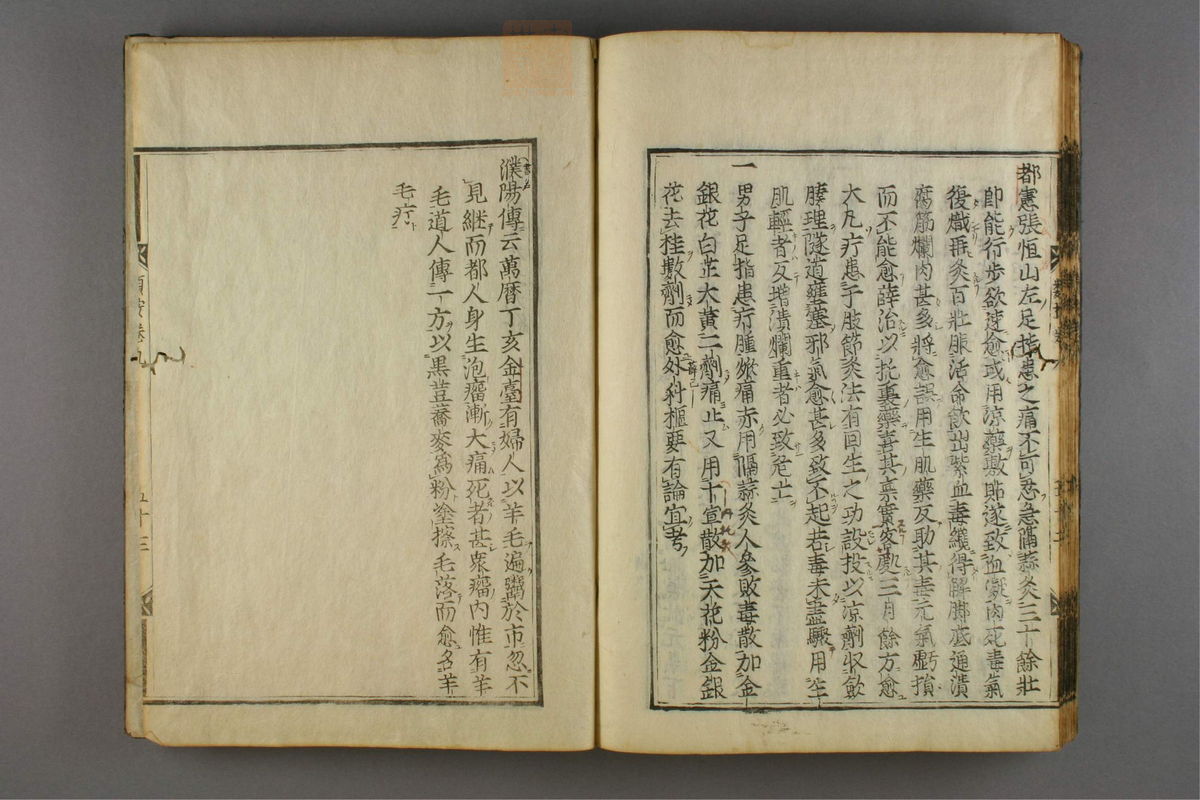 都憲張恒山左足指患之痛不可忍急隔蒜灸三十餘壯
即能行步欲速愈或用涼藥敷貼遂致血凝肉死毒氣
復熾再灸百壯服活命飲出紫血毒纔得解脚底通潰
腐筋爛肉甚多將愈誤用生肌藥反助其毒元氣虧損
而不能愈薛治以托裏藥喜其稟實客處三月餘方愈
大凡疔患于肢節灸法有回生之功設投以涼劑收斂
腠理隧道壅塞邪氣愈甚多致不起若毒未盡驟用生
肌輕者反增潰爛重者必致危亡
一 男子足指患疔腫焮痛赤用隔蒜灸人參敗毒散加金
銀花白芷大黃二劑痛止又用十宣散加天花粉金銀
花去桂數劑而愈外科樞要有論宜考
濮陽傳云萬曆丁亥金臺有婦人以羊毛遍鬻於市忽不
見継而都人身生泡瘤漸大痛死者甚衆瘤内惟有羊
毛道人傳一方以黒荳蕎麥爲粉塗搽毛落而愈名羊
毛疔
五十三